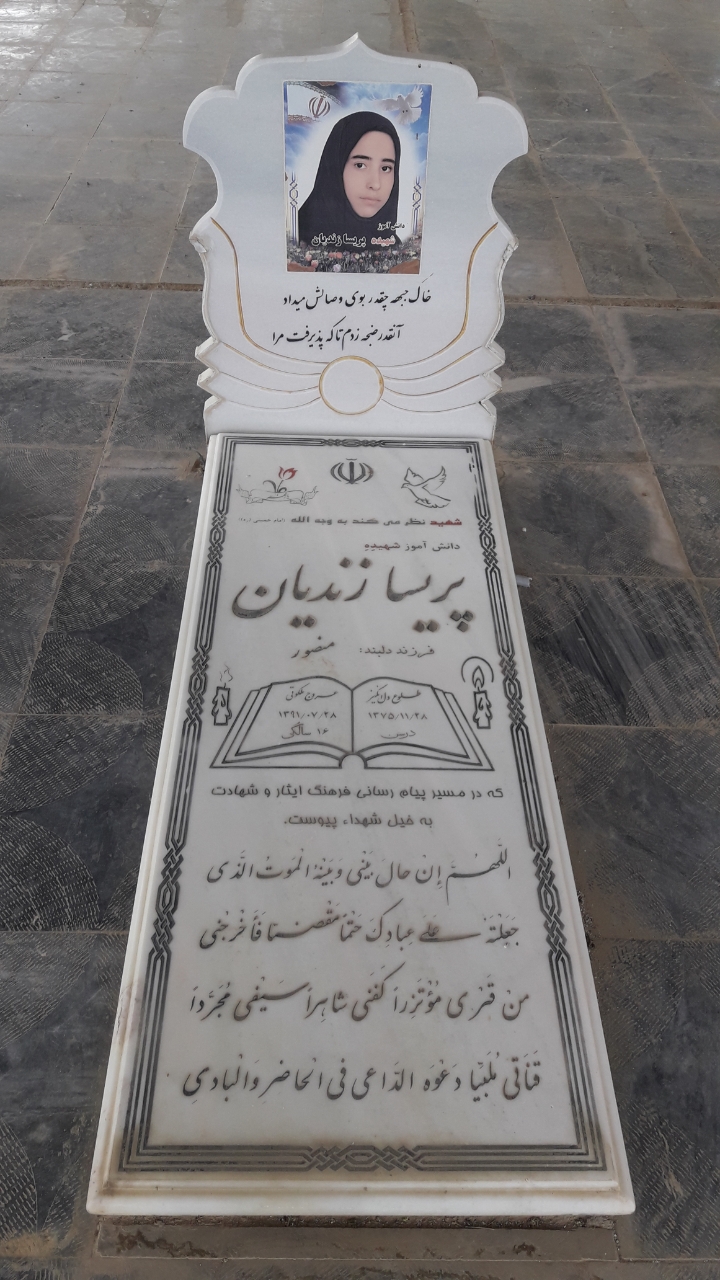 دانش آموز
شهیده پریسا زندیان
خاک جبهه چقدر بوی وصالش میداد
آنقدر ضجه زدم تا که پذیرفت مرا
شهید نظر می کند به وجه الله (امام خمینی ره)
دانش آموز شهیده
پریسا زندیان
فرزند دلبند: منصور
طلوع دل انگیز
۱۳۷۵/۱۱/۲۸
درس
عروج ملکوتی
۱۳۹۱/۰۷/۲۸
۱۶ سالگی
که در مسیر پیام رسانی فرهنگ ایثار و شهادت
به خیل شهداء پیوست.
اللّهُمَّ إِنْ حالَ بَیْنی وَ بَیْنَهُ الْمَوتُ الَّذی
جَعَلْتَهُ عَلی عِبادِکَ حَتْماً مَقْضیّا فَأَخْرِجْنی
مِنْ قَبْری مُؤْتَزِراً کَفَنی شاهِراً سَیْفی مُجَرَّداً
قَنَاتی مُلَبّیا دَعْوَه الدّاعی فی الْحاضِرِ وَالْبادی